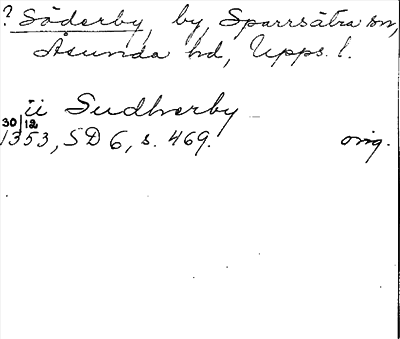 ? Söderby, by, Sparrsätra sn,
Åsunda hd, Upps. l.
ii Sudhrerby
30/12
1353, SD 6, s. 469. orig.